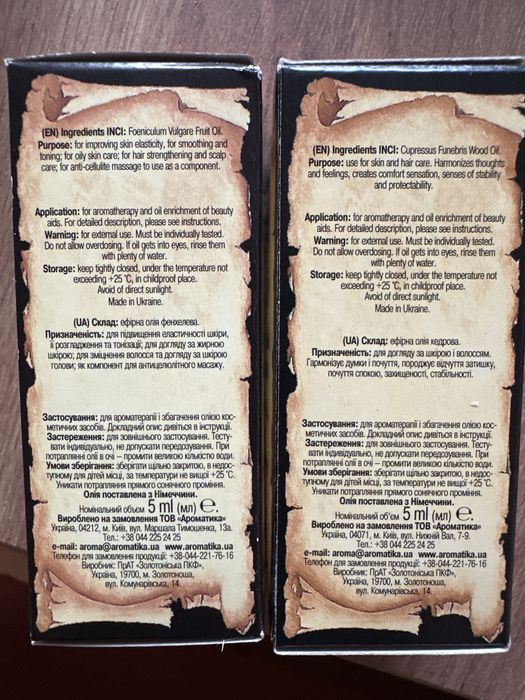 (EN) Ingredients INCI: Foeniculum Vulgare Fruit Oil.
Purpose: for improving skin elasticity, for smoothing and
toning; for oily skin care; for hair strengthening and scalp
care; for anti-cellulite massage to use as a component.
Application: for aromatherapy and oil enrichment of beauty
aids. For detailed description, please see instructions.
Warning: for external use. Must be individually tested.
Do not allow overdosing. If oil gets into eyes, rinse them
with plenty of water.
Storage: keep tightly closed, under the temperature not
exceeding +25 °C, in childproof place.
Avoid of direct sunlight.
Made in Ukraine.
(UA) Склад: ефірна олія фенхелева.
Призначення: для підвищення еластичності шкіри,
її розгладження та тонізації; для догляду за жирною
шкірою; для зміцнення волосся та догляду за шкірою
голови; як компонент для антицелюлітного масажу.
Застосування: для ароматерапії і збагачення олією кос-
метичних засобів. Докладний опис дивіться в інструкції.
Застереження: для зовнішнього застосування. Тесту-
вати індивідуально, не допускати передозування. При
потраплянні олії в очі – промити великою кількістю води.
Умови зберігання: зберігати щільно закритою, в недос-
тупному для дітей місці, за температури не вищої +25 °C.
Уникати потрапляння прямого сонячного проміння.
Олія поставлена з Німеччини.
Номінальний об'єм 5 ml (мл) ℮.
Вироблено на замовлення ТОВ «Ароматика»
Україна, 04212, м. Київ, вул. Маршала Тимошенка, 13а.
Тел.: +38 044 225 24 25
e-mail: aroma@aromatika.ua www.aromatika.ua
Телефон для замовлення продукції: +38-044-221-76-16
Виробник: ПрАТ «Золотоніська ПКФ»,
Україна, 19700, м. Золотоноша,
вул. Комунарівська, 14.
(EN) Ingredients INCI: Cupressus Funebris Wood Oil.
Purpose: use for skin and hair care. Harmonizes thoughts
and feelings, creates comfort sensation, senses of stability
and protectability.
Application: for aromatherapy and oil enrichment of beauty
aids. For detailed description, please see instructions.
Warning: for external use. Must be individually tested.
Do not allow overdosing. If oil gets into eyes, rinse them
with plenty of water.
Storage: keep tightly closed, under the temperature not
exceeding +25 °C, in childproof place.
Avoid of direct sunlight.
Made in Ukraine.
(UA) Склад: ефірна олія кедрова.
Призначення: для догляду за шкірою і волоссям.
Гармонізує думки і почуття, породжує відчуття затишку,
почуття спокою, захищеності, стабільності.
Застосування: для ароматерапії і збагачення олією кос-
метичних засобів. Докладний опис дивіться в інструкції.
Застереження: для зовнішнього застосування. Тесту-
вати індивідуально, не допускати передозування. При
потраплянні олії в очі – промити великою кількістю води.
Умови зберігання: зберігати щільно закритою, в недос-
тупному для дітей місці, за температури не вищої +25 °C.
Уникати потрапляння прямого сонячного проміння.
Олія поставлена з Німеччини.
Номінальний об'єм 5 ml (мл) ℮.
Вироблено на замовлення ТОВ «Ароматика»
Україна, 04071, м. Київ, вул. Нижній Вал, 7-9.
Тел.: +38 044 225 24 25
e-mail: aroma@aromatika.ua www.aromatika.ua
Телефон для замовлення продукції: +38-044-221-76-16
Виробник: ПрАТ «Золотоніська ПКФ»,
Україна, 19700, м. Золотоноша,
вул. Комунарівська, 14.